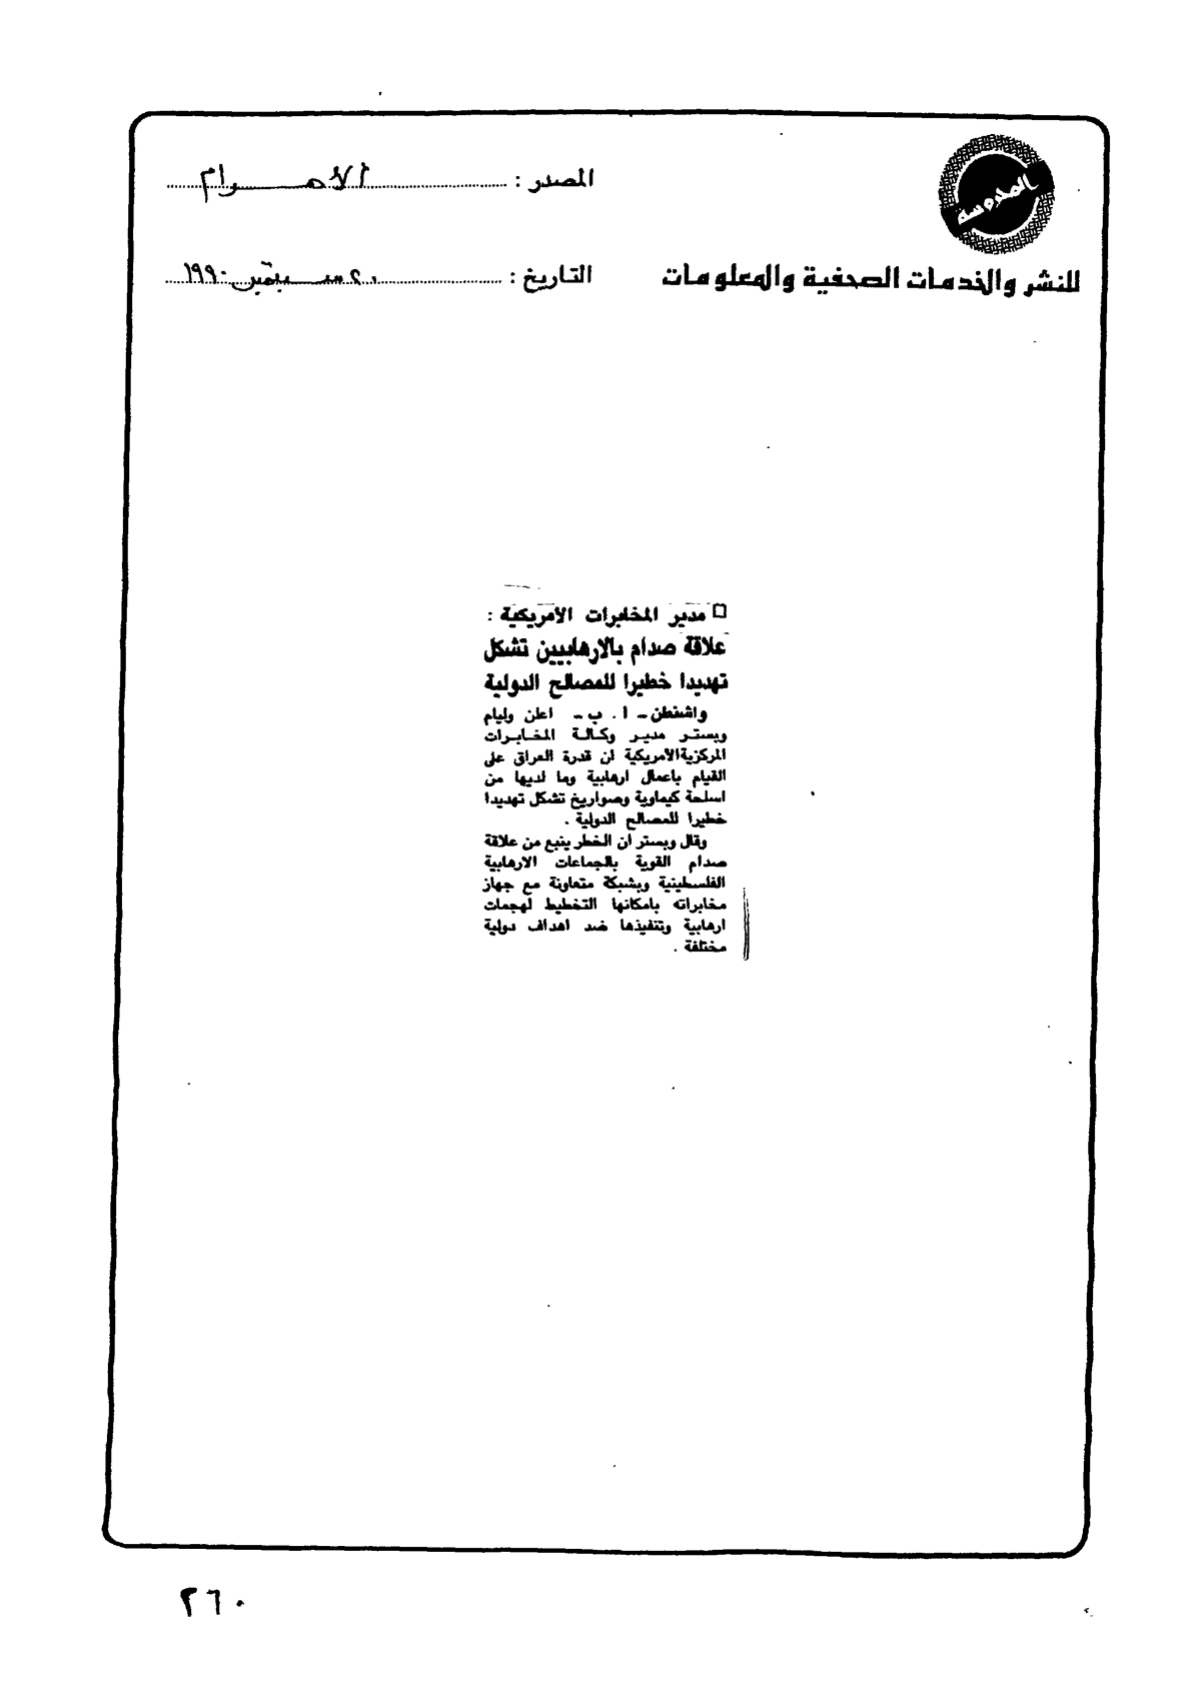 المحروسة
للنشر والخدمات الصحفية والمعلومات
المصدر : الأهـــرام
التاريخ : ٢٠ سبتمبر ١٩٩٠
□ مدير المخابرات الأمريكية :
علاقة صدام بالارهابيين تشكل
تهديدا خطيرا للمصالح الدولية
واشنطن ـ ا . ب ـ اعلن وليام
ويستر مدير وكالة المخابرات
المركزية الامريكية ان قدرة العراق على
القيام باعمال ارهابية وما لديها من
اسلحة كيماوية وصواريخ تشكل تهديدا
خطيرا للمصالح الدولية .
وقال ويستر ان الخطر ينبع من علاقة
صدام القوية بالجماعات الارهابية
الفلسطينية وبشبكة متعاونة مع جهاز
مخابراته بامكانها التخطيط لهجمات
ارهابية وتنفيذها ضد اهداف دولية
مختلفة .
٢٦٠